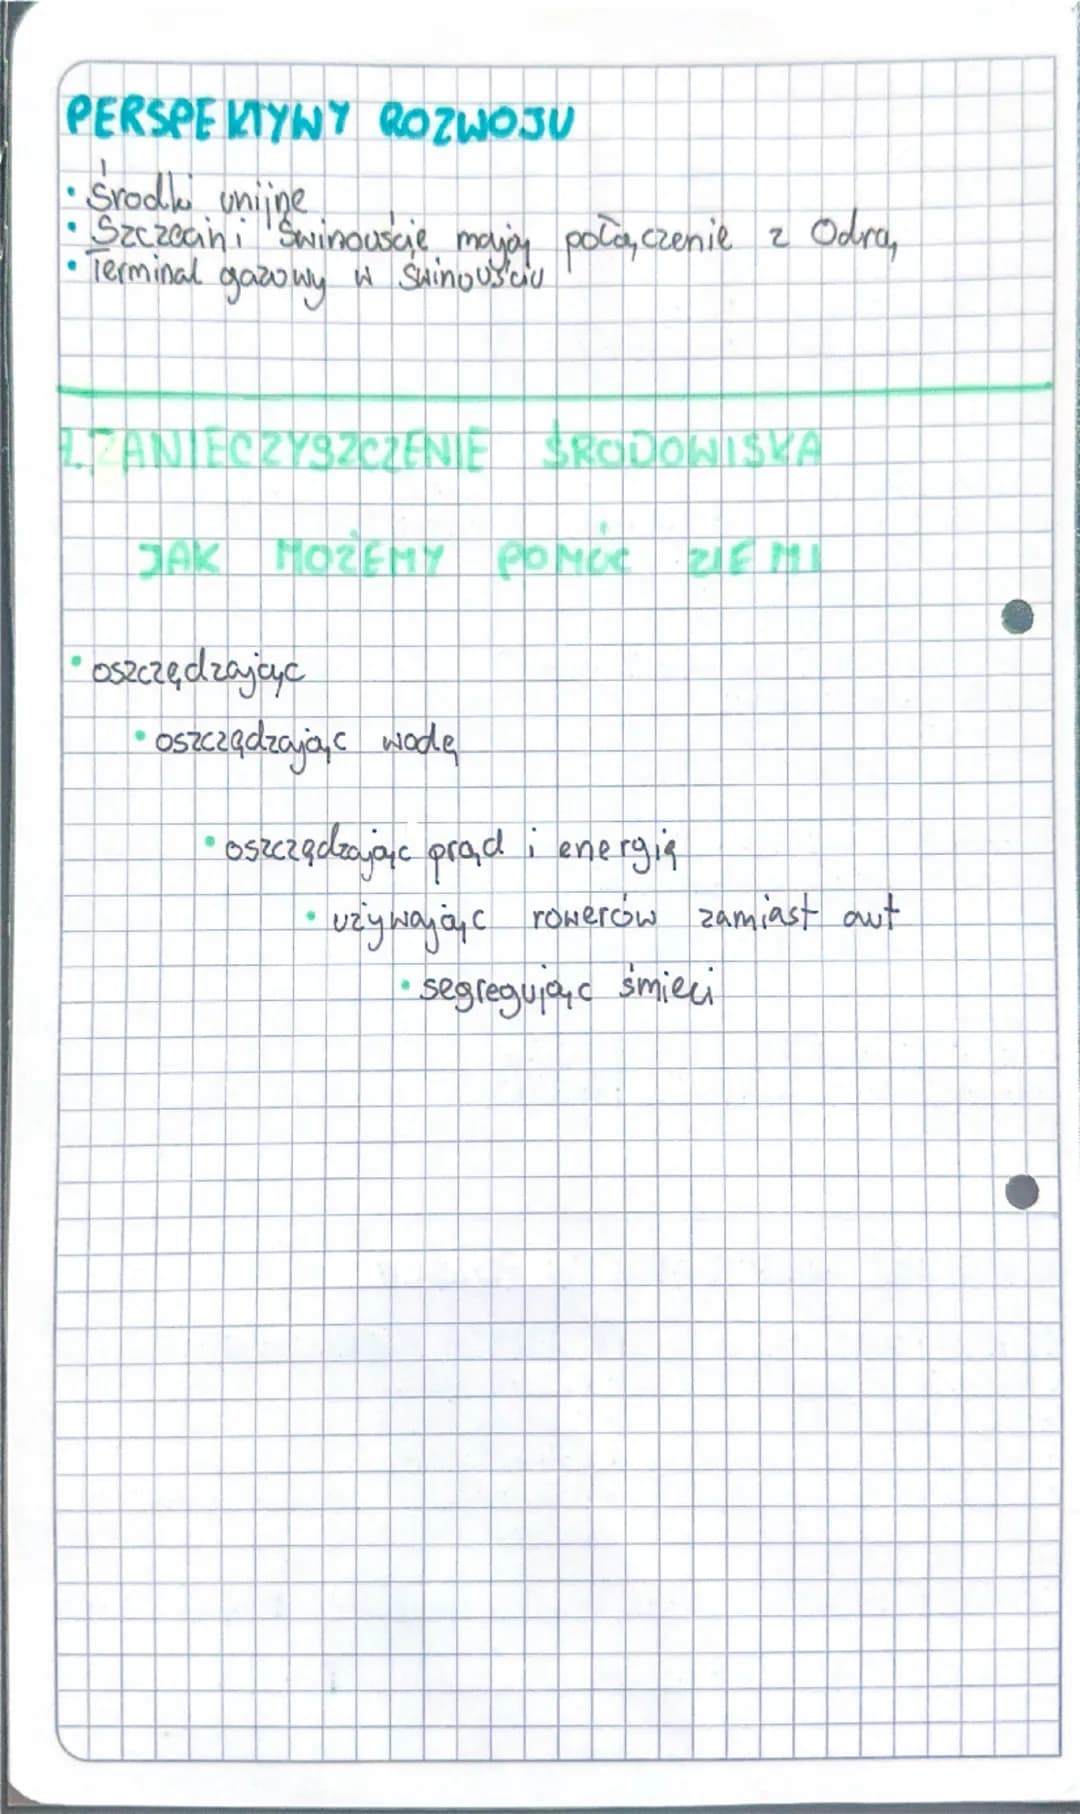 PERSPEKTYWY ROZWOJU
• Środki unijne
• Szczecin i Świnoujście mają połączenie z Odrą
• Terminal gazowy w Świnoujściu
7. ZANIECZYSZCZENIE ŚRODOWISKA
JAK MOŻEMY POMÓC ZIEMI
• oszczędzając
• oszczędzając wodę
• oszczędzając prąd i energię
• używając rowerów zamiast aut
• segregując śmieci